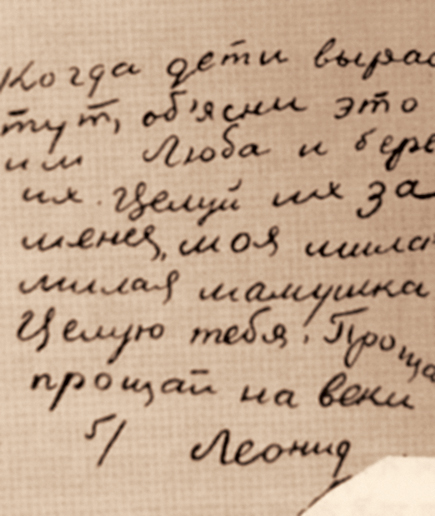 Когда дети вырас
тут, об'ясни это
им Люба и бере
их. Целуй их за
меня, моя мила
милая мамушка
Целую тебя. Проща
прощай на веки
5/ Леонид